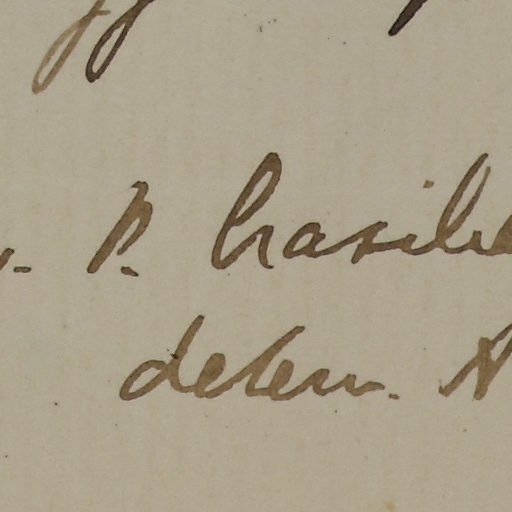 P. brasilie
determ. A